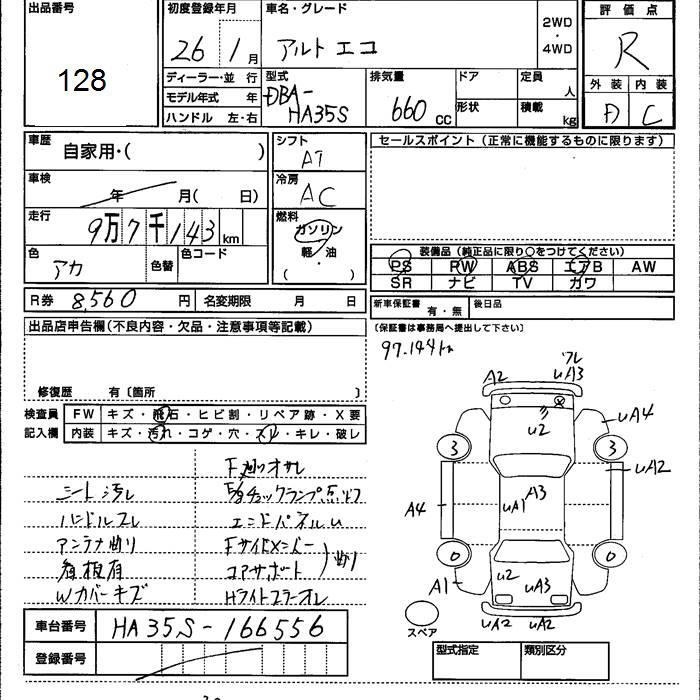 出品番号
128
初度登録年月
26年 1月
車名・グレード
アルト エコ
2WD
・
4WD
評価点
R
ディーラー・並 行
モデル年式 年
ハンドル 左・右
型式
DBA-
HA35S
排気量
660 cc
ドア
形状
定員 人
積載 kg
外装
内装
D
C
車歴
自家用・( )
車検
年 月( 日)
走行
9万7千143km
色
アカ
色替
色コード
シフト
AT
冷房
AC
燃料
ガソリン
軽・油
( )
セールスポイント (正常に機能するものに限ります)
装備品 (純正品に限り○をつけてください)
PS PW ABS エアB AW
SR ナビ TV カワ
R券 8,560 円
名変期限 月 日
新車保証書 有・無
後日品
(保証書は事務局へ提出して下さい)
出品店申告欄(不良内容・欠品・注意事項等記載)
修復歴 有〔箇所 〕
検査員
記入欄
FW キズ・飛石・ヒビ割・リペア跡・X要
内装 キズ・汚れ・コゲ・穴・スレ・キレ・破レ
97.144km
シート汚レ
ハンドルスレ
アンテナ曲り
看板有
Wカバーキズ
エンドパネルu
Fサイドメンバー
コアサポート
曲り
A2
ワレ
uA3
uA4
u2
3
3
uA2
A3
uA1
A4
0
0
A1
u2
uA3
uA2
uA2
スペア
車台番号 HA35S-166556
登録番号
型式指定
類別区分